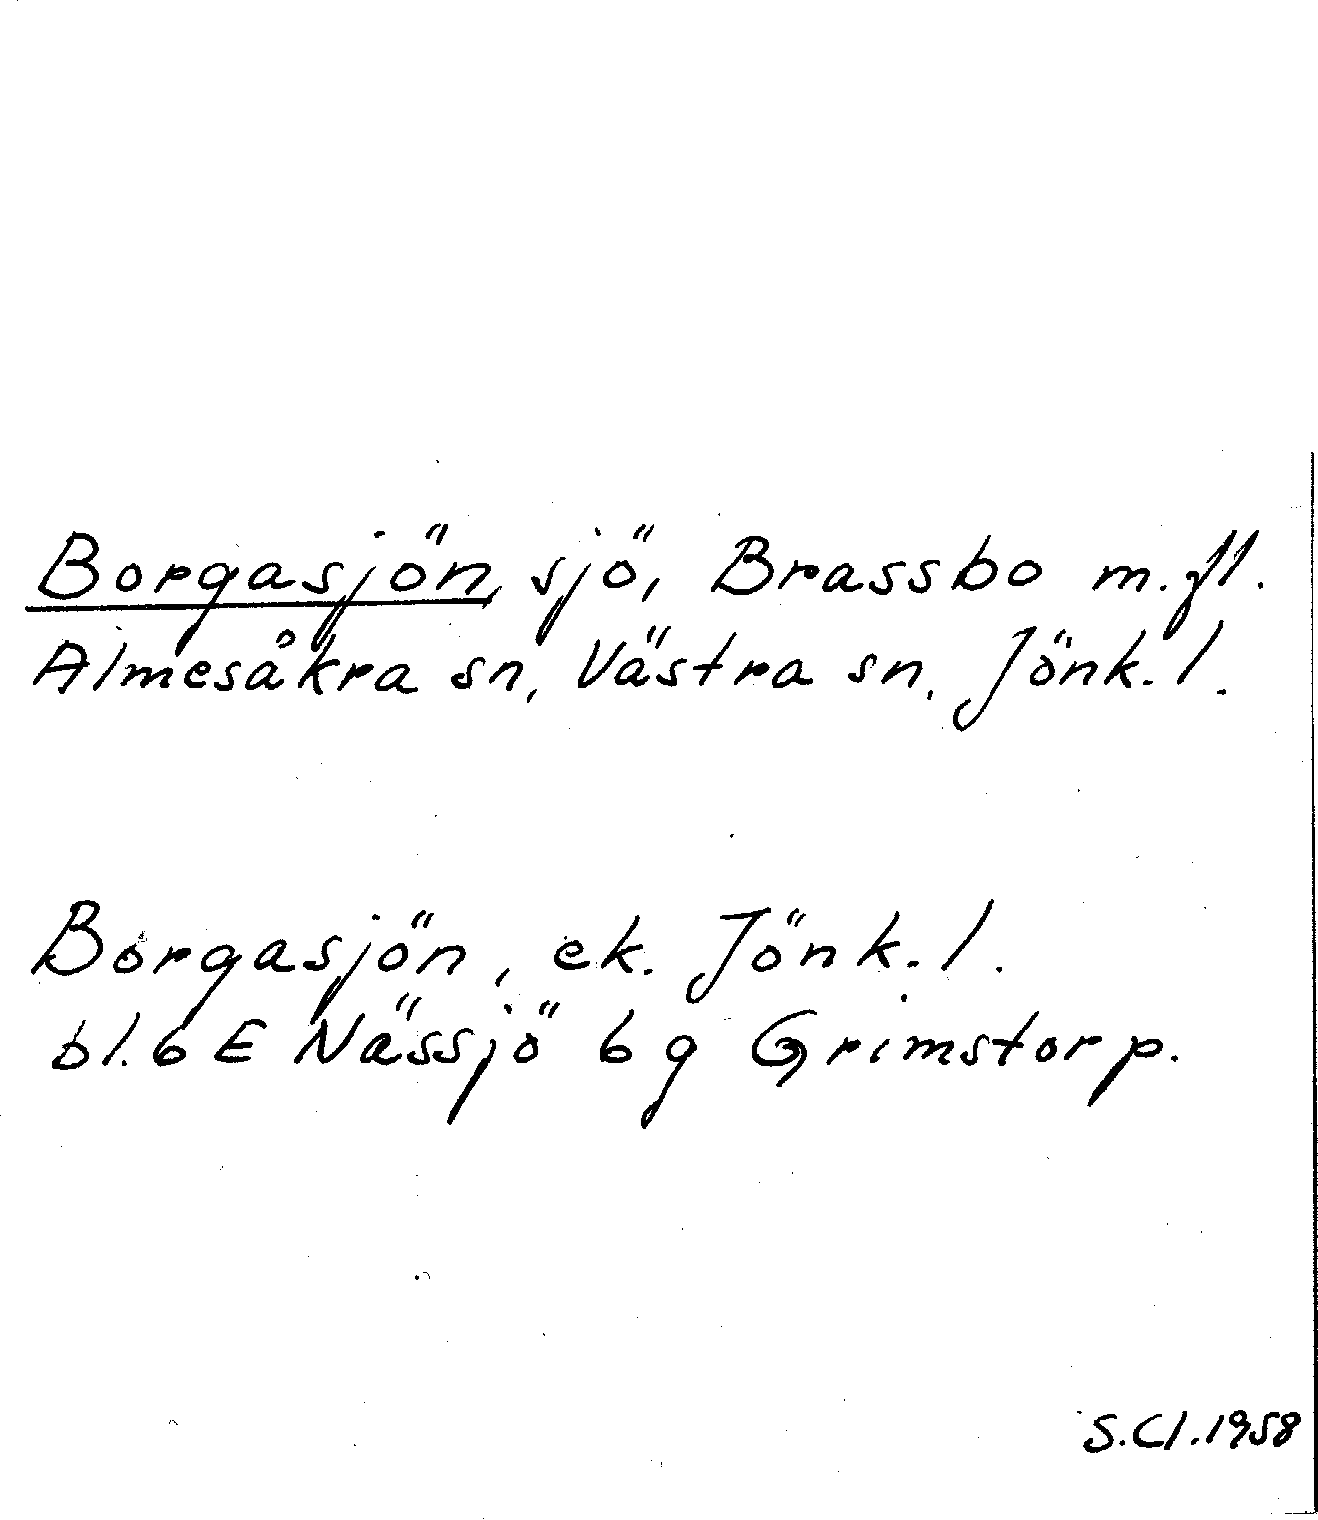 Borgasjön, sjö, Brassbo m.fl.
Almesåkra sn, Västra sn, Jönk. l.
Borgasjön, ek. Jönk. l.
bl. 6 E Nässjö 6 g Grimstorp.
S.Cl. 1958